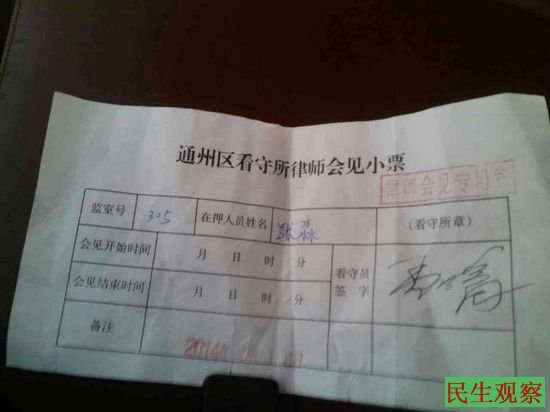 通州区看守所律师会见小票
律师会见专用章
监室号 305 在押人员姓名 张淼 (看守所章)
会见开始时间 月 日 时 分 看守员
会见结束时间 月 日 时 分 签字
备注
民生观察